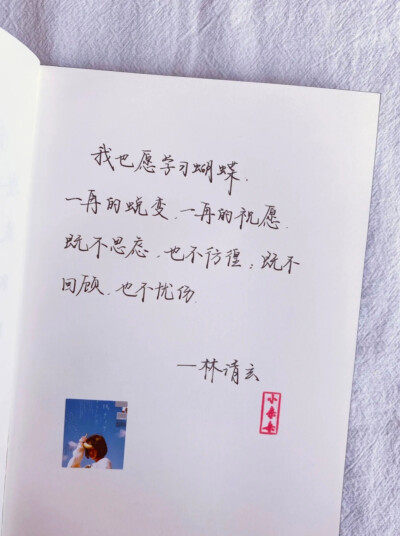 我也愿学习蝴蝶.
一再的蜕变.一再的祝愿.
既不思恋.也不彷徨;既不
回顾.也不忧伤.
一林清玄